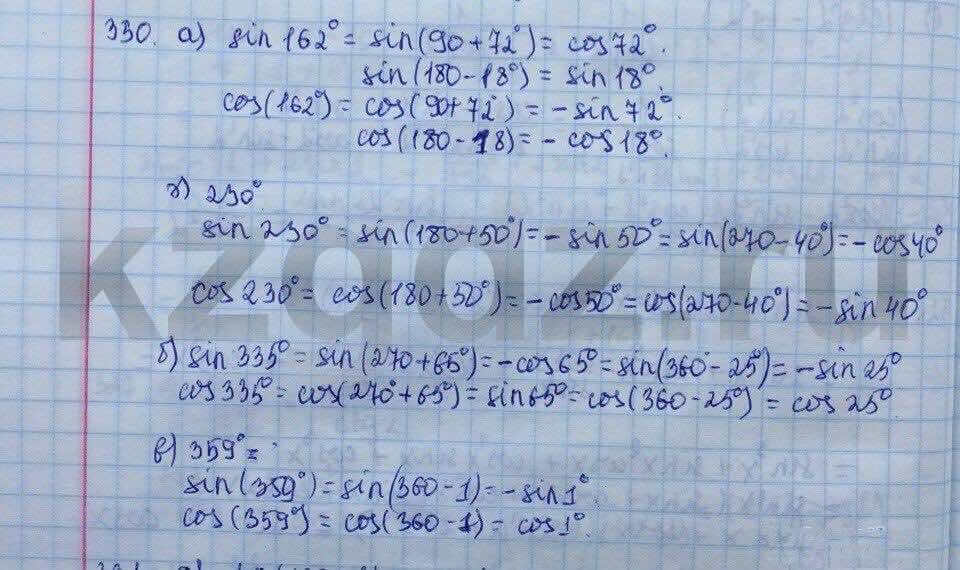 330. а) sin 162° = sin(90+72°) = cos 72°.
sin(180-18°) = sin 18°.
cos(162°) = cos(90+72°) = -sin 72°.
cos(180-18) = - cos 18°.
г) 230°
sin 230° = sin(180+50°) = - sin 50° = sin(270-40°) = - cos 40°
cos 230° = cos(180+50°) = - cos 50° = cos(270-40°) = - sin 40°
kzgdz.ru
б) sin 335° = sin(270+65°) = - cos 65° = sin(360-25°) = - sin 25°
cos 335° = cos(270°+65°) = sin 65° = cos(360-25°) = cos 25°.
в) 359° =
sin(359°) = sin(360-1) = - sin 1°.
cos(359°) = cos(360-1) = cos 1°.